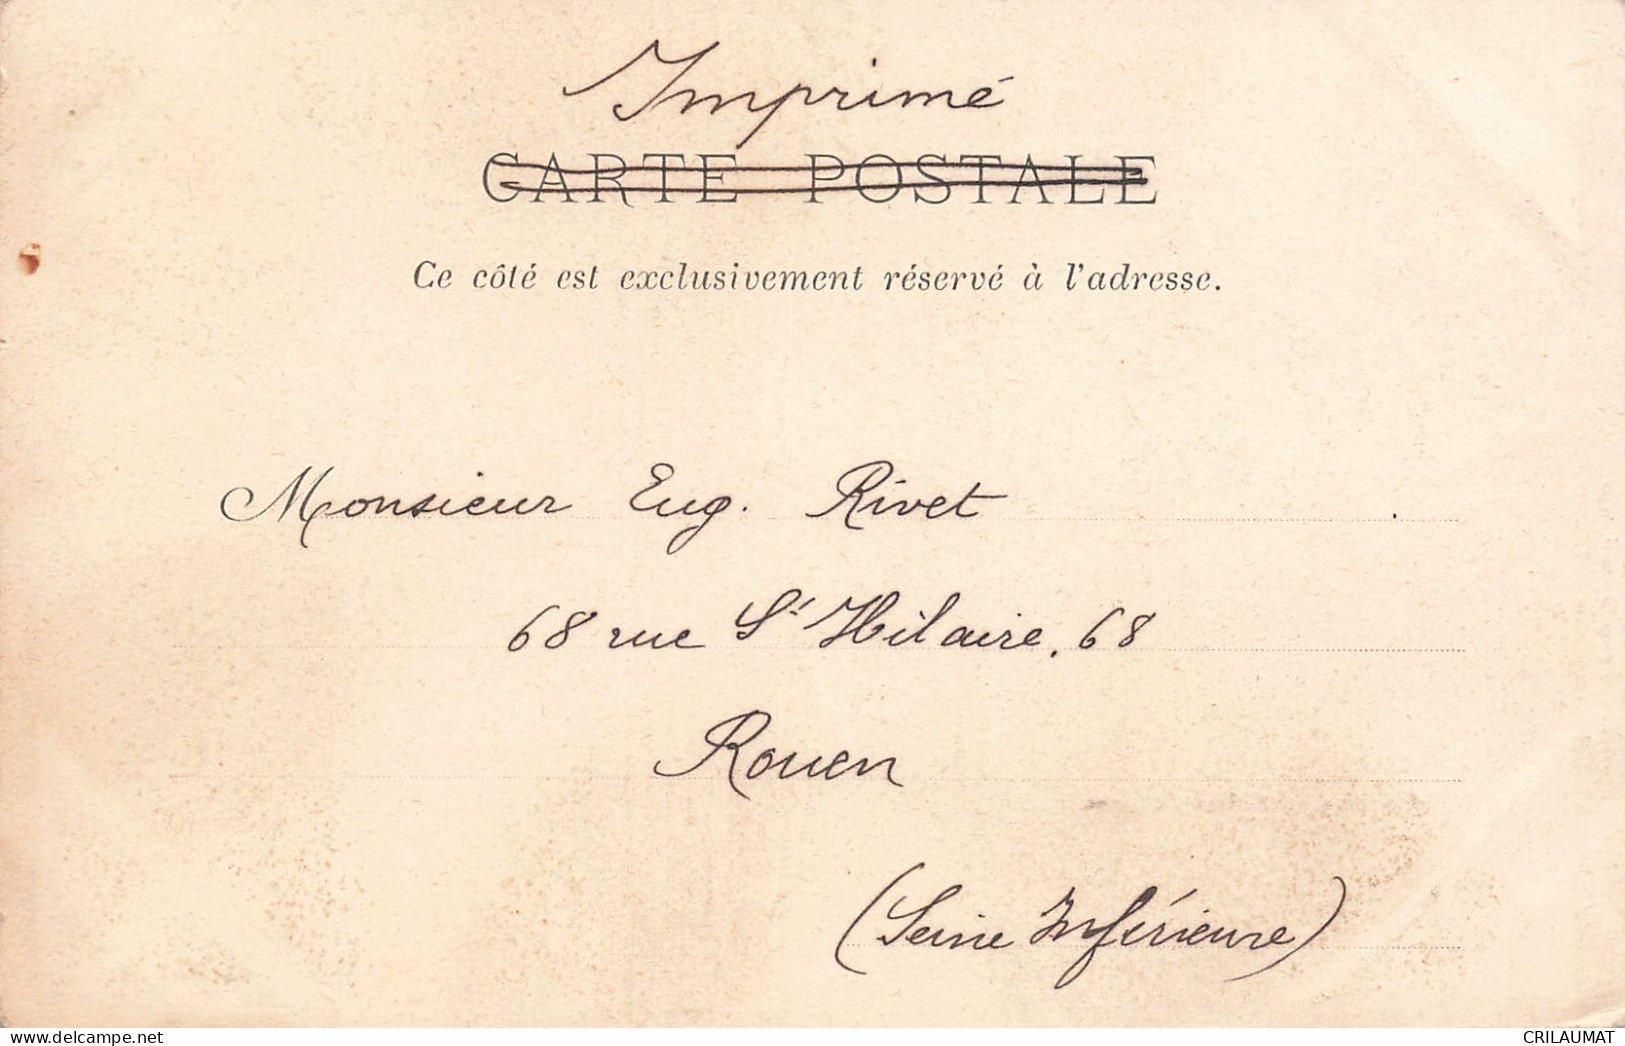 Imprimé
CARTE POSTALE
Ce côté est exclusivement réservé à l'adresse.
Monsieur Eug. Rivet
68 rue St Hilaire. 68
Rouen
(Seine Inférieure)
www.delcampe.net
CRILAUMAT